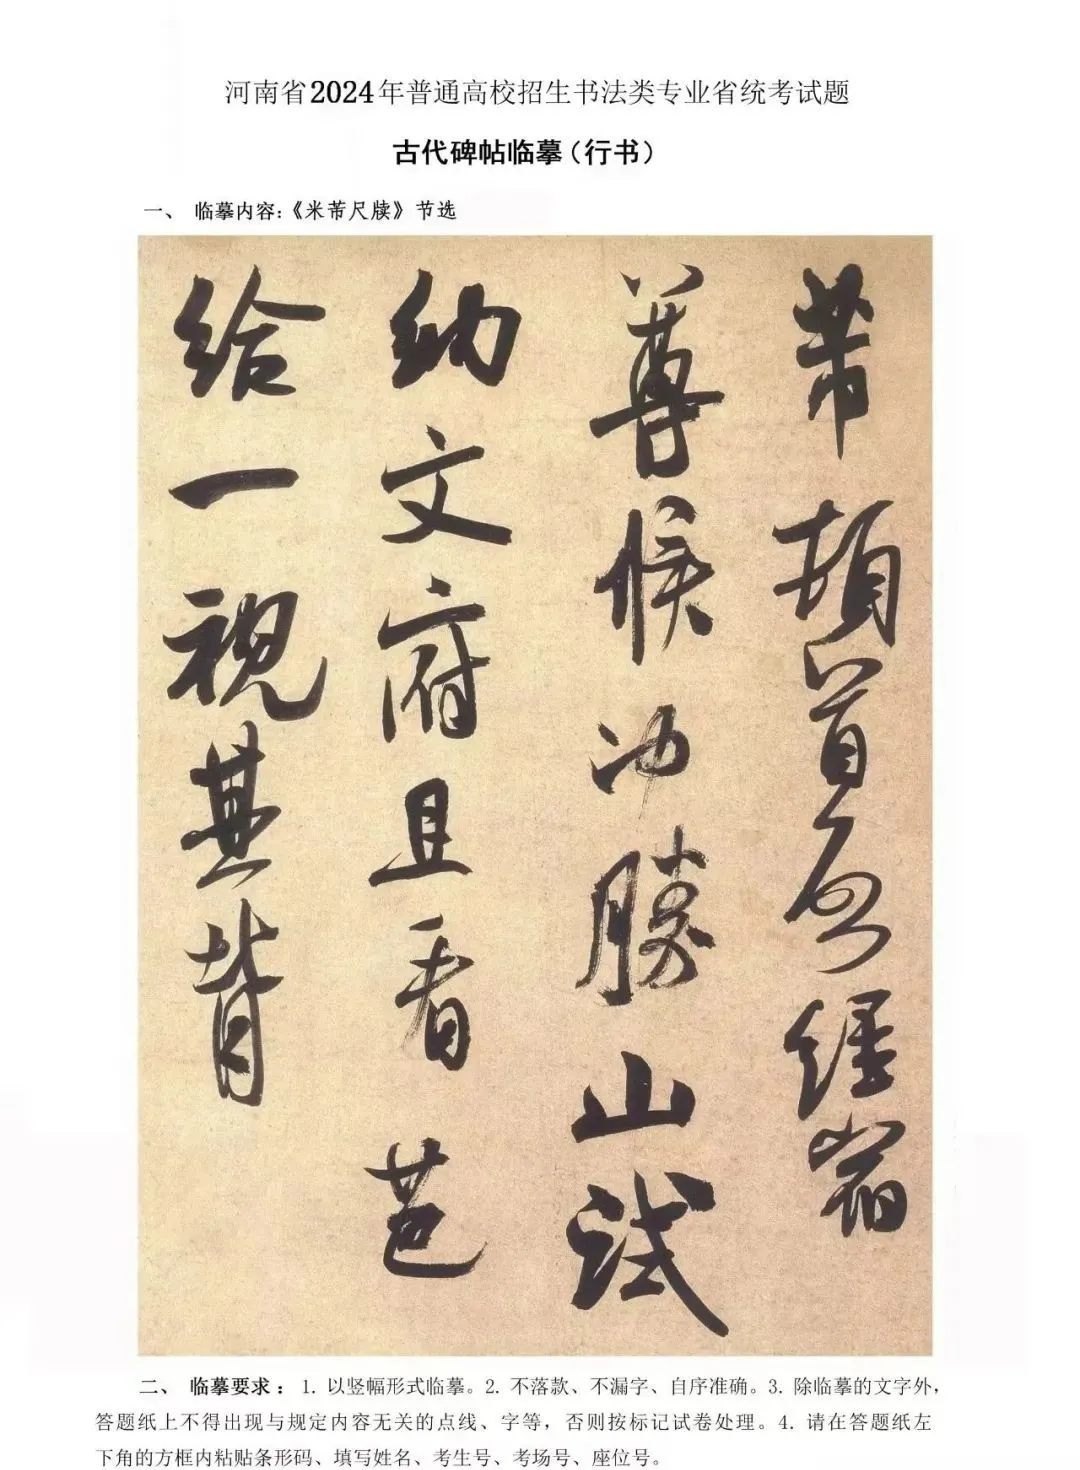 河南省2024年普通高校招生书法类专业省统考试题
古代碑帖临摹(行书)
一、 临摹内容:《米芾尺牍》节选
芾頓首再啓經宿
尊候沖勝山試
幼文府且看芭
給一視其背
二、 临摹要求: 1. 以竖幅形式临摹。2. 不落款、不漏字、自序准确。3. 除临摹的文字外,
答题纸上不得出现与规定内容无关的点线、字等,否则按标记试卷处理。4. 请在答题纸左
下角的方框内粘贴条形码、填写姓名、考生号、考场号、座位号。